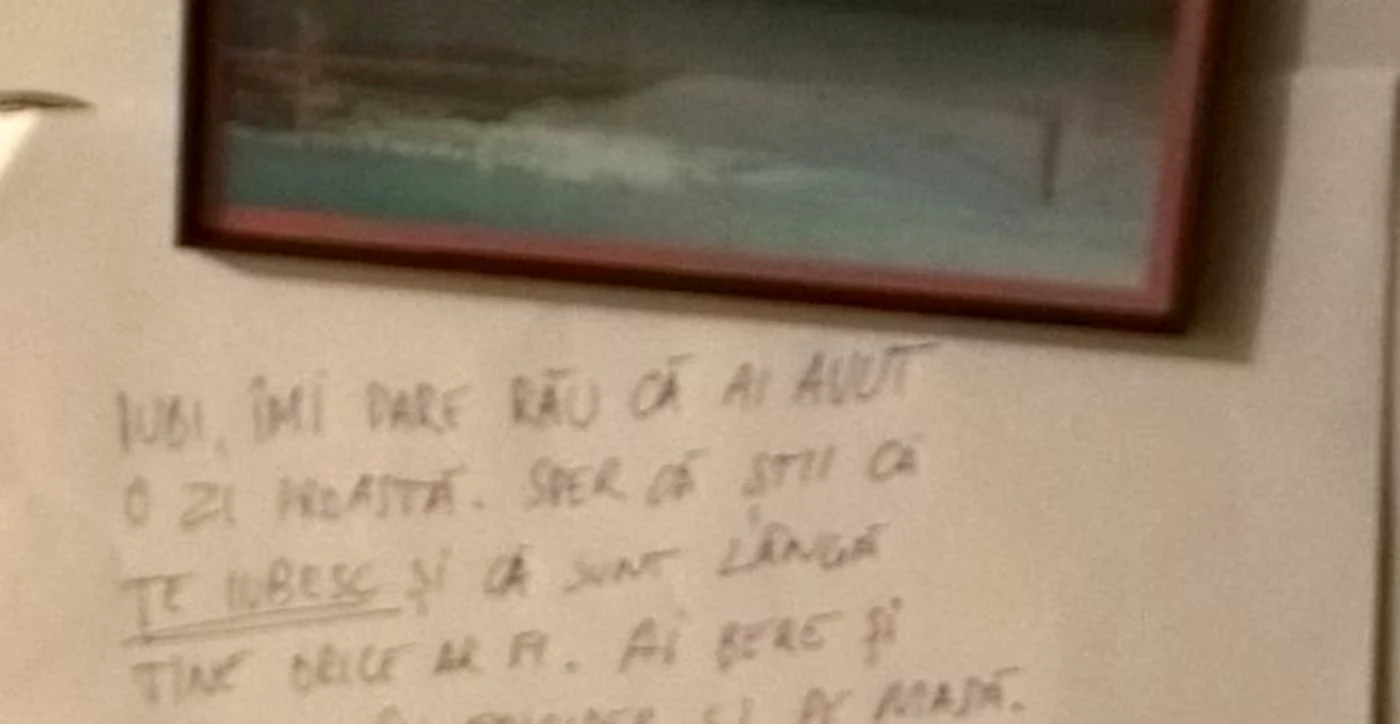 IUBI, ÎMI PARE RĂU CĂ AI AVUT
O ZI PROASTĂ. SPER CĂ ȘTII CĂ
TE IUBESC ȘI CĂ SUNT LÂNGĂ
TINE ORICE AR FI. AI BERE ȘI
ȘI PE MASĂ.